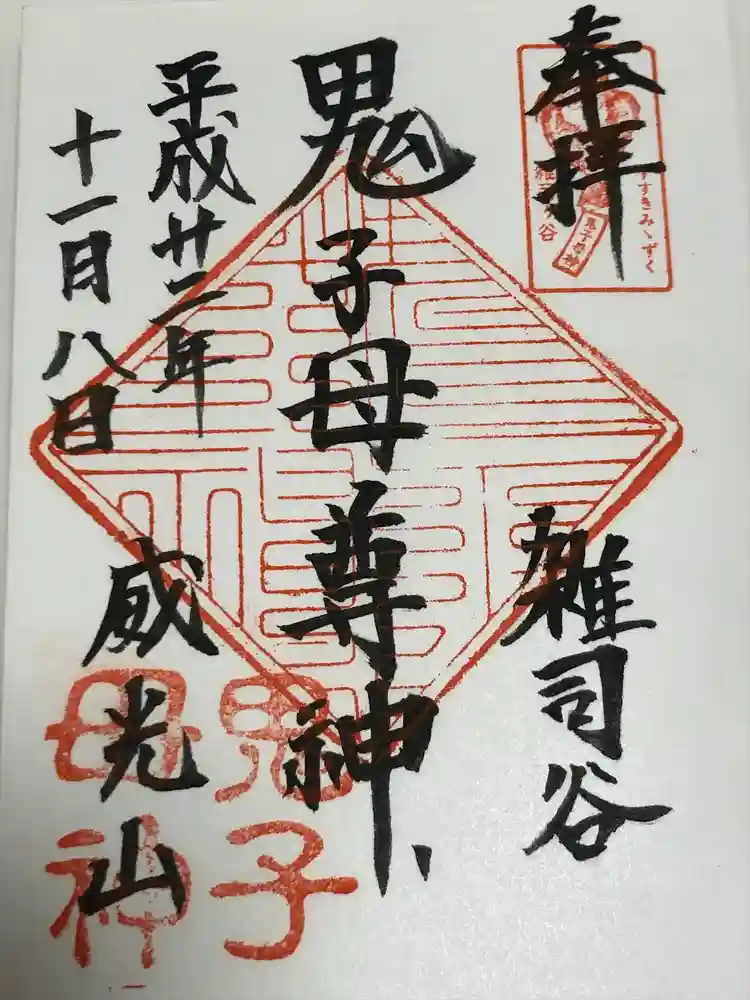 奉拝
雑司谷
鬼子母尊神
平成廿二年
十一月八日
威光山
すすきみゝずく
雑司ヶ谷
鬼子母神
鬼子
母神